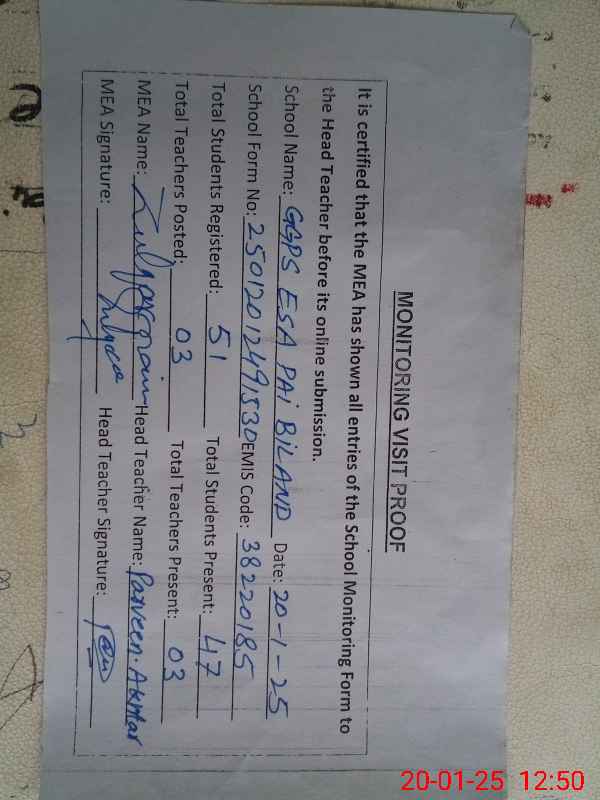 MONITORING VISIT PROOF
It is certified that the MEA has shown all entries of the School Monitoring Form to
the Head Teacher before its online submission.
School Name: GGPS ESA PAi BiLAND Date: 20-1-25
School Form No: 25012012491530 EMIS Code: 38220185
Total Students Registered: 51 Total Students Present: 47
Total Teachers Posted: 03 Total Teachers Present: 03
MEA Name: Head Teacher Name: Parveen. Akhtar
MEA Signature: Head Teacher Signature:
20-01-25 12:50